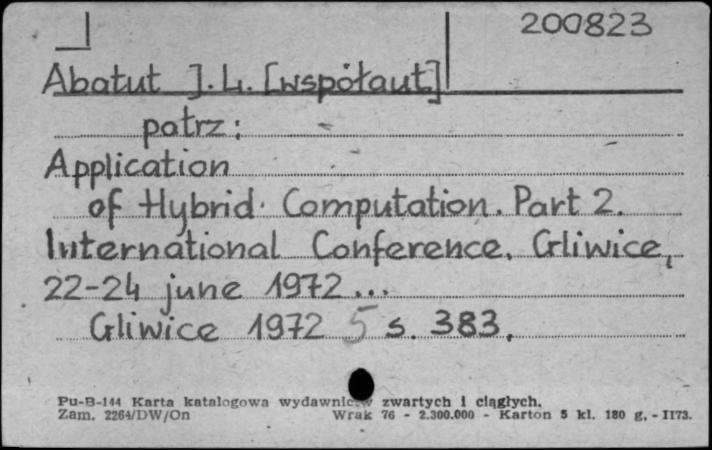 200823
Abatut J. L. [współaut]
patrz:
Application
of Hybrid Computation. Part 2.
International Conference. Gliwice,
22-24 june 1972...
Gliwice 1972 5 s. 383.
Pu-B-144 Karta katalogowa wydawnictw zwartych i ciągłych.
Zam. 2264/DW/On Wrak 76 - 2.300.000 - Karton 5 kl. 180 g. - II73.